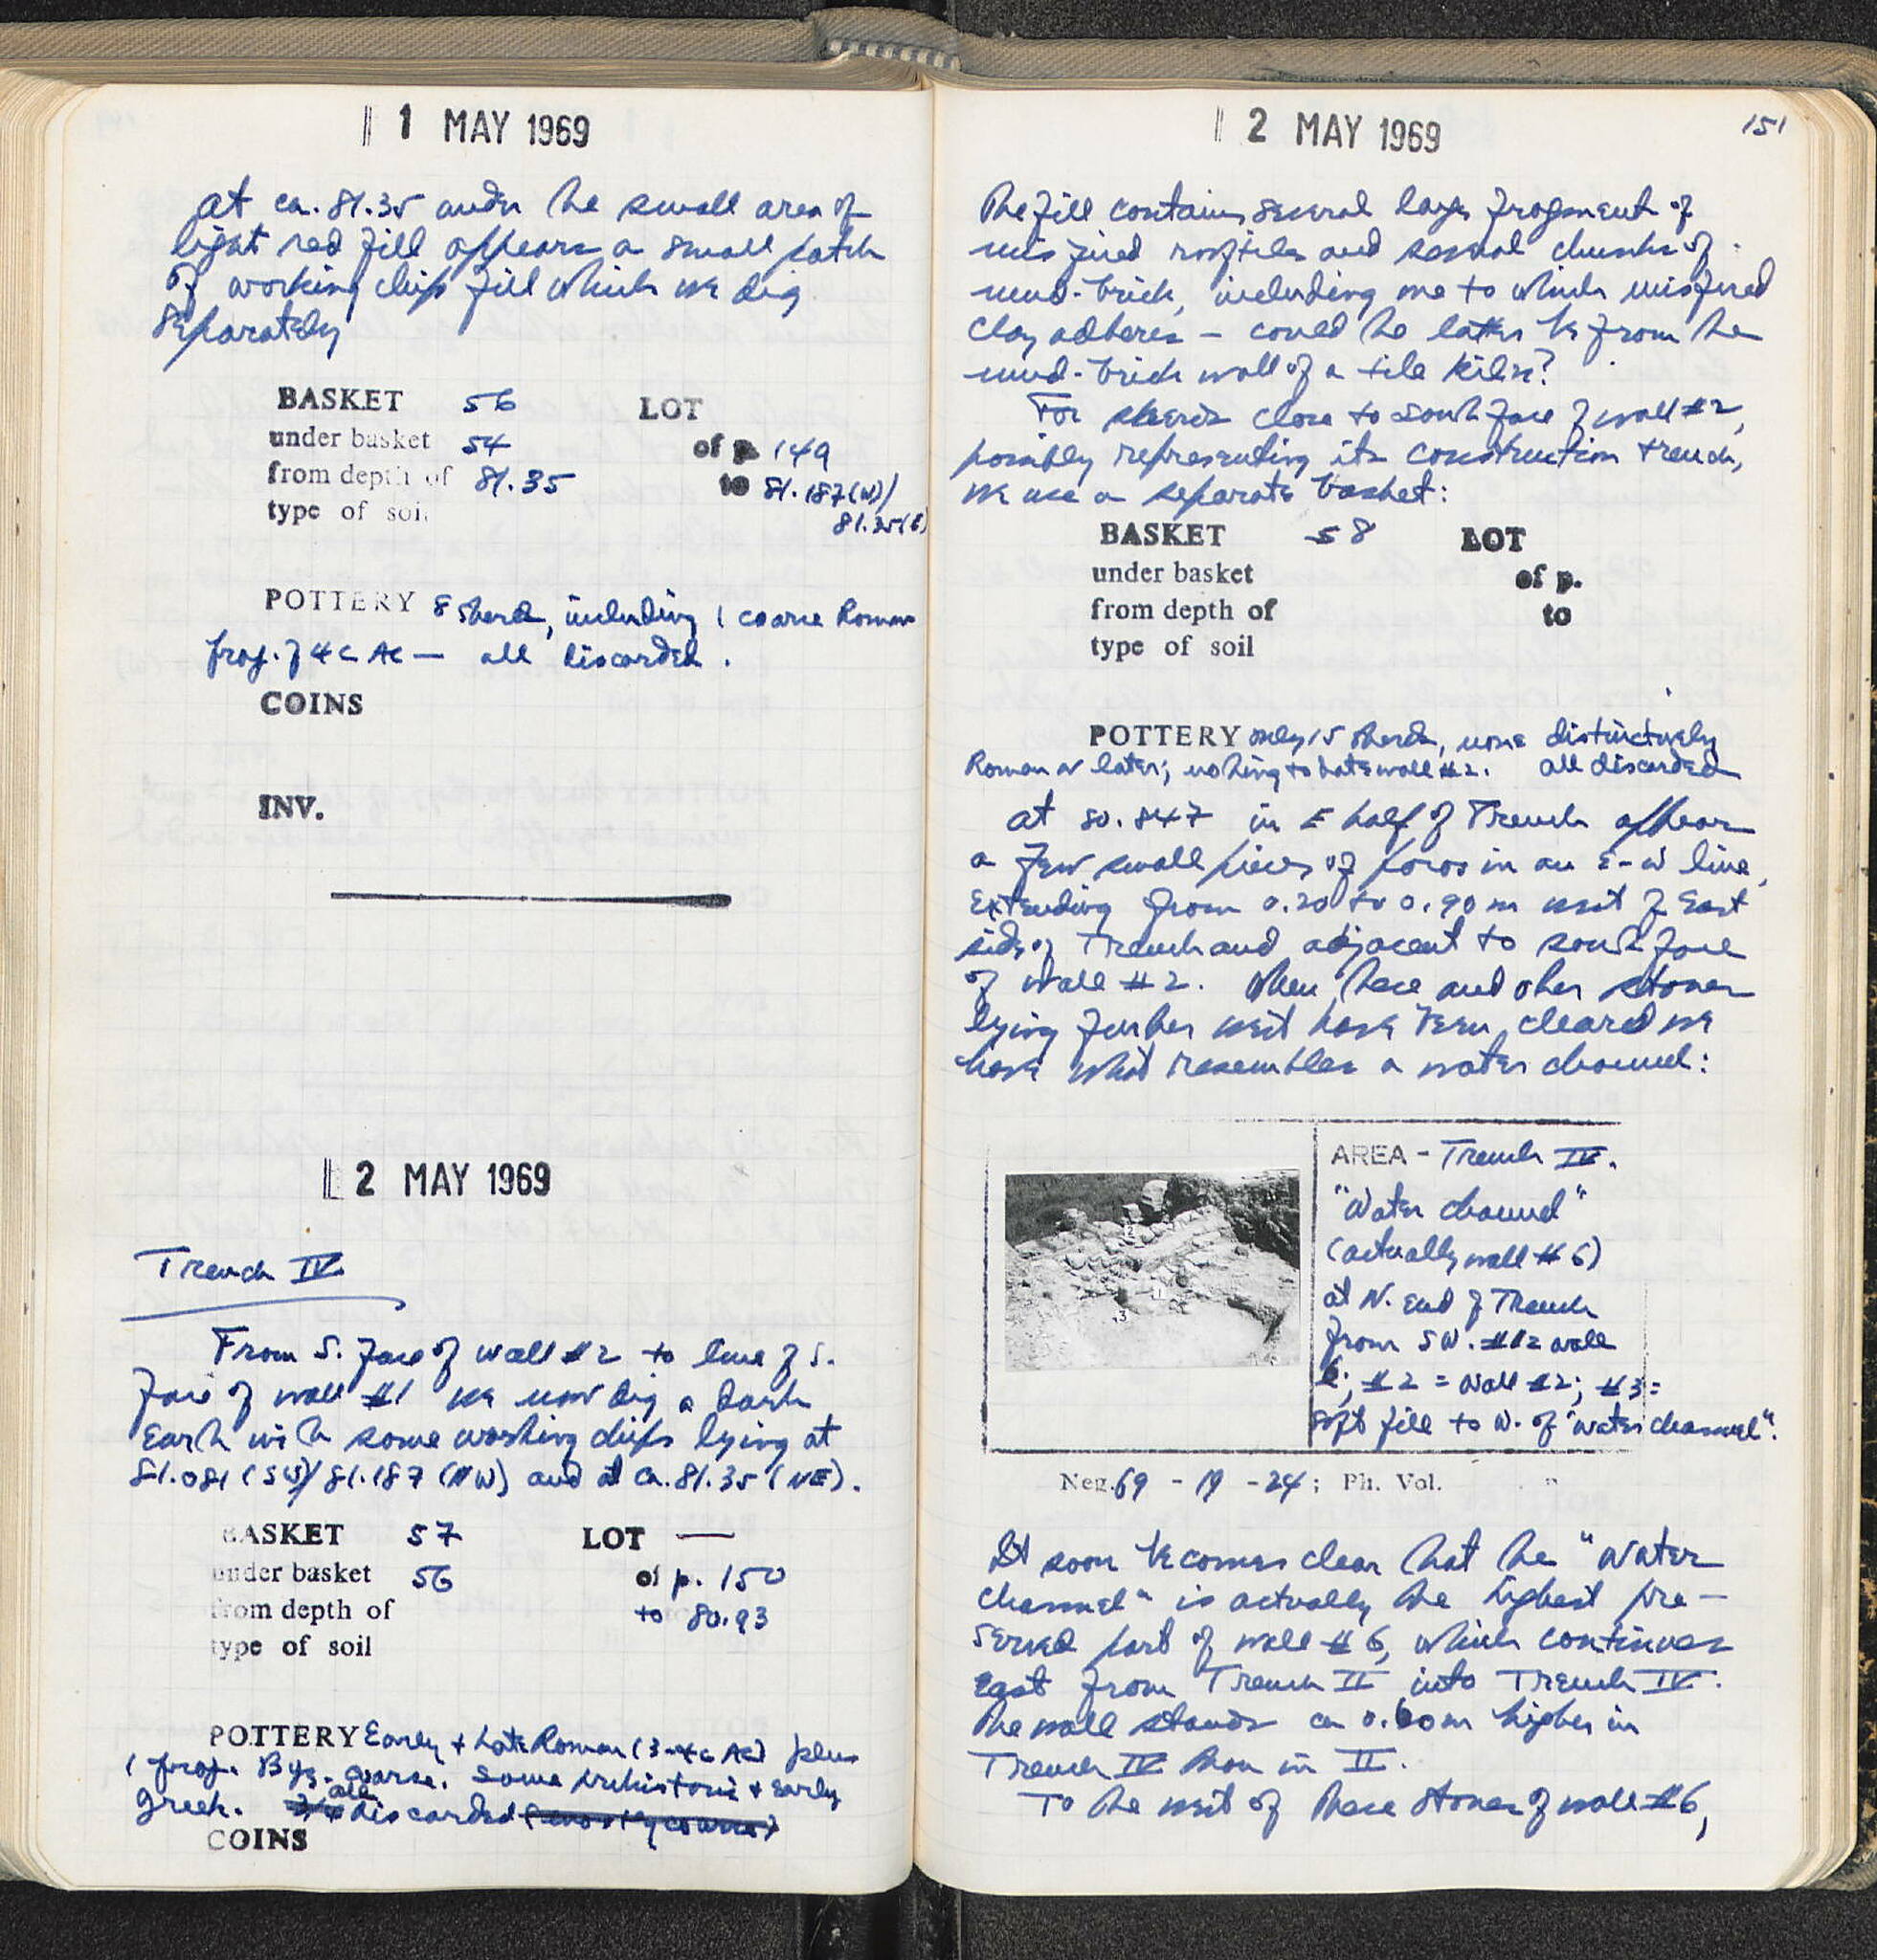 1 MAY 1969
at ca. 81.35 under the small area of
light red fill appears a small patch
of working chips fill which we dig
separately
BASKET 56 LOT
under basket 54 of p. 149
from depth of 81.35 to 81.187(W)/
type of soil 81.35(E)
POTTERY 8 sherds, including 1 coarse Roman
frag. of 4c AC — all discarded.
COINS
INV.
2 MAY 1969
Trench IV
From S. face of wall #2 to line of S.
face of wall #1 we now dig a dark
earth with some working chips lying at
81.081 (SW)/81.187 (NW) and at ca. 81.35 (NE).
BASKET 57 LOT —
under basket 56 of p. 150
from depth of to 80.93
type of soil
POTTERY Early + Late Roman (3-4c AC) plus
1 frag. Byz. coarse. Some prehistoric + early
Greek. all discarded (mostly coarse)
COINS
2 MAY 1969
151
The fill contains several large fragments of
misfired rooftiles and several chunks of
mud-brick, including one to which misfired
clay adheres – could the latter be from the
mud-brick wall of a tile kiln?
For sherds close to south face of wall #2,
possibly representing its construction trench,
we use a separate basket:
BASKET 58 LOT
under basket of p.
from depth of to
type of soil
POTTERY only 15 sherds, none distinctively
Roman or later; nothing to date wall #2. all discarded
at 80.847 in E half of Trench appear
a few small pieces of poros in an E-W line,
extending from 0.20 to 0.90 m west of East
side of Trench and adjacent to south face
of wall #2. When these and other stones
lying further west have been cleared we
have what resembles a water channel:
AREA - Trench IV.
"Water channel"
(actually wall #6)
at N. end of Trench
from SW. #1 = wall
6; #2 = wall #2; #3 =
soft fill to W. of "water channel".
2
1
3
Neg. 69 - 19 - 24; Ph. Vol.
It soon becomes clear that the "water
channel" is actually the highest pre-
served part of wall #6, which continues
east from Trench II into Trench IV.
The wall stands ca 0.60m higher in
Trench IV than in II.
To the west of these stones of wall #6,